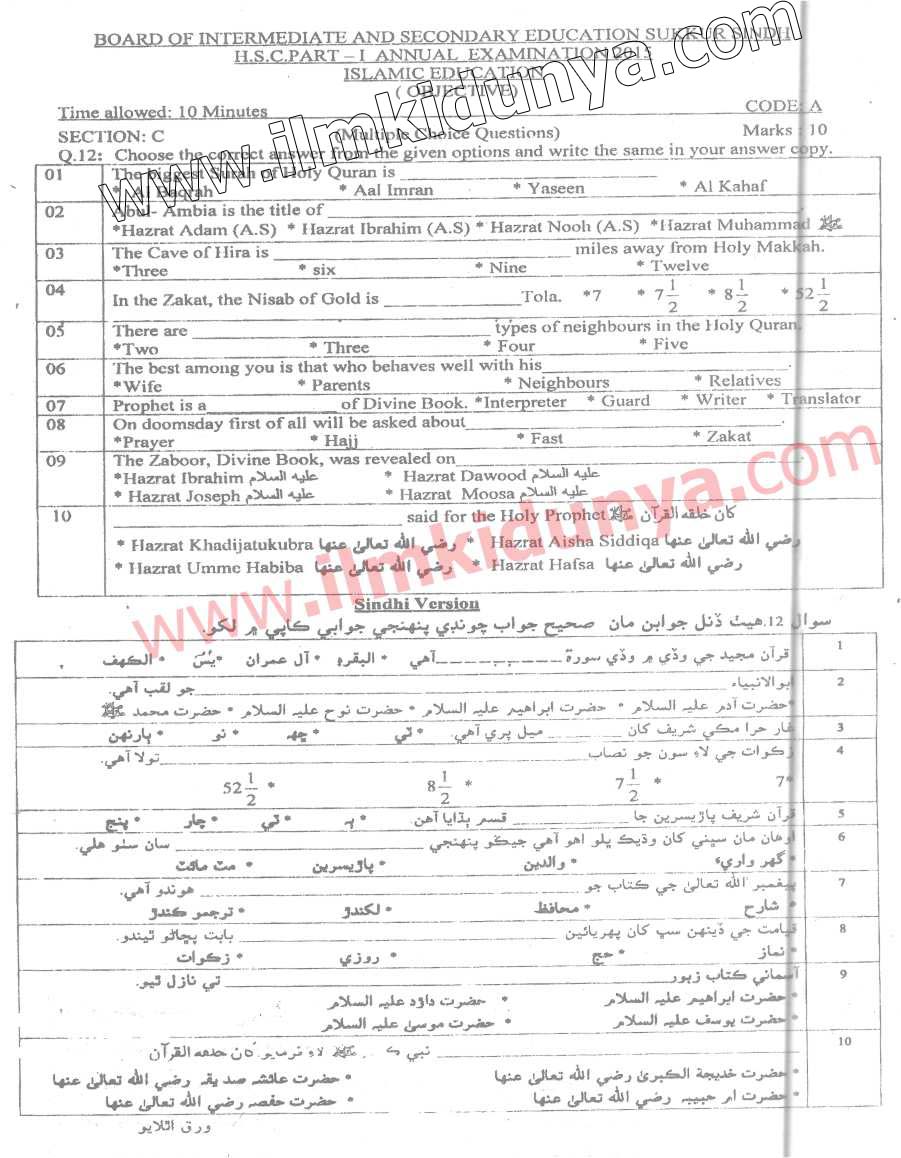 BOARD OF INTERMEDIATE AND SECONDARY EDUCATION SUKKUR SINDH
H.S.C.PART – I ANNUAL EXAMINATION 2015
ISLAMIC EDUCATION
( OBJECTIVE)
Time allowed: 10 Minutes CODE: A
SECTION: C (Multiple Choice Questions) Marks : 10
Q.12: Choose the correct answer from the given options and write the same in your answer copy.
01 The biggest Surah of Holy Quran is
* Al Baqrah * Aal Imran * Yaseen * Al Kahaf
02 Abul- Ambia is the title of
*Hazrat Adam (A.S) * Hazrat Ibrahim (A.S) * Hazrat Nooh (A.S) *Hazrat Muhammad ﷺ
03 The Cave of Hira is ____ miles away from Holy Makkah.
*Three * six * Nine * Twelve
04 In the Zakat, the Nisab of Gold is ____ Tola. *7 * 7 1/2 * 8 1/2 * 52 1/2
05 There are ____ types of neighbours in the Holy Quran.
*Two * Three * Four * Five
06 The best among you is that who behaves well with his____.
*Wife * Parents * Neighbours * Relatives
07 Prophet is a____ of Divine Book. *Interpreter * Guard * Writer * Translator
08 On doomsday first of all will be asked about____.
*Prayer * Hajj * Fast * Zakat
09 The Zaboor, Divine Book, was revealed on____
*Hazrat Ibrahim عليه السلام * Hazrat Dawood عليه السلام
* Hazrat Joseph عليه السلام * Hazrat Moosa عليه السلام
10 ____ said for the Holy Prophet ﷺ كان خلقه القرآن
* Hazrat Khadijatukubra رضي الله تعالىٰ عنها * Hazrat Aisha Siddiqa رضي الله تعالىٰ عنها
* Hazrat Umme Habiba رضي الله تعالىٰ عنها * Hazrat Hafsa رضي الله تعالىٰ عنها
Sindhi Version
سوال 12. هيٺ ڏنل جوابن مان صحيح جواب چونڊي پنهنجي جوابي ڪاپي ۾ لکو.
1 قرآن مجيد جي وڏي ۾ وڏي سورة ____ آهي. * البقره * آل عمران * يٰسٓ * الڪهف
2 ابوالانبياء ____ جو لقب آهي.
* حضرت آدم عليه السلام * حضرت ابراهيم عليه السلام * حضرت نوح عليه السلام * حضرت محمد ﷺ
3 غار حرا مڪي شريف کان ____ ميل پري آهي. * ٽي * ڇهه * نو * ٻارنهن
4 زڪوات جي لاءِ سون جو نصاب ____ تولا آهي.
*7 * 7 1/2 * 8 1/2 * 52 1/2
5 قرآن شريف پاڙيسرين جا ____ قسم ٻڌايا آهن. * ٻه * ٽي * چار * پنج
6 اوهان مان سڀني کان وڌيڪ ڀلو اهو آهي جيڪو پنهنجي ____ سان سٺو هلي.
* گهر واريءَ * والدين * پاڙيسرين * مٽ مائٽ
7 پيغمبر الله تعالىٰ جي ڪتاب جو ____ هوندو آهي.
* شارح * محافظ * لکندڙ * ترجمو ڪندڙ
8 قيامت جي ڏينهن سڀ کان پهريائين ____ بابت پڇاڻو ٿيندو.
* نماز * حج * روزي * زڪوات
9 آسماني ڪتاب زبور ____ تي نازل ٿيو.
* حضرت ابراهيم عليه السلام * حضرت داؤد عليه السلام
* حضرت يوسف عليه السلام * حضرت موسىٰ عليه السلام
10 ____ نبي ﷺ لاءِ القرآن
* حضرت خديجة الڪبرىٰ رضي الله تعالىٰ عنها * حضرت عائشه صديقه رضي الله تعالىٰ عنها
* حضرت ام حبيبه رضي الله تعالىٰ عنها * حضرت حفصه رضي الله تعالىٰ عنها
ورق اٿلايو
www.ilmkidunya.com
www.ilmkidunya.com